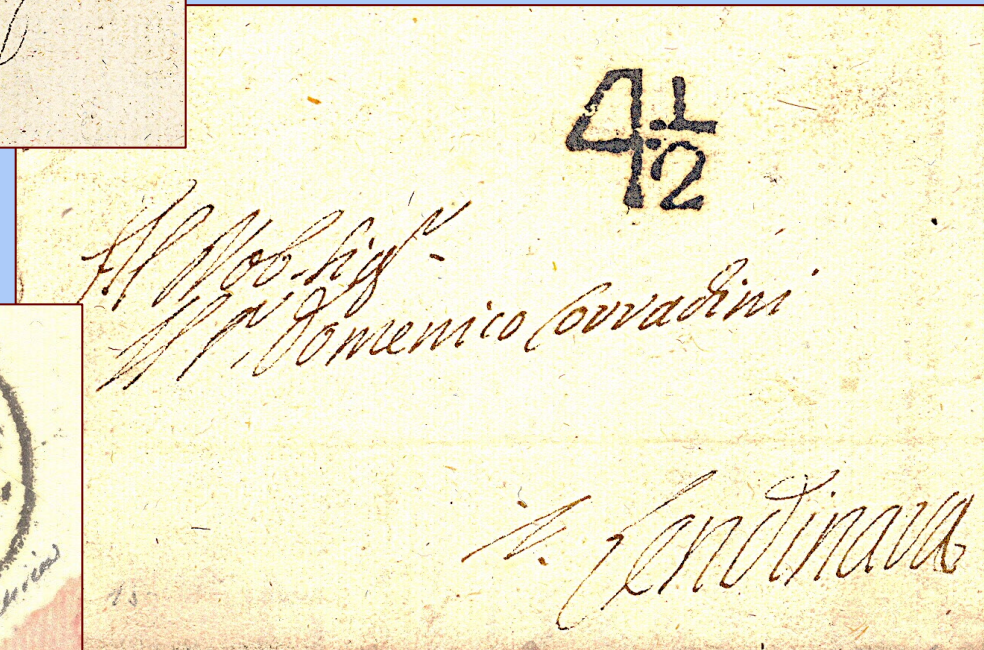 4 1/2
Al Nob. Sigr.
Il Sr. Domenico Corradini
Lendinara
15